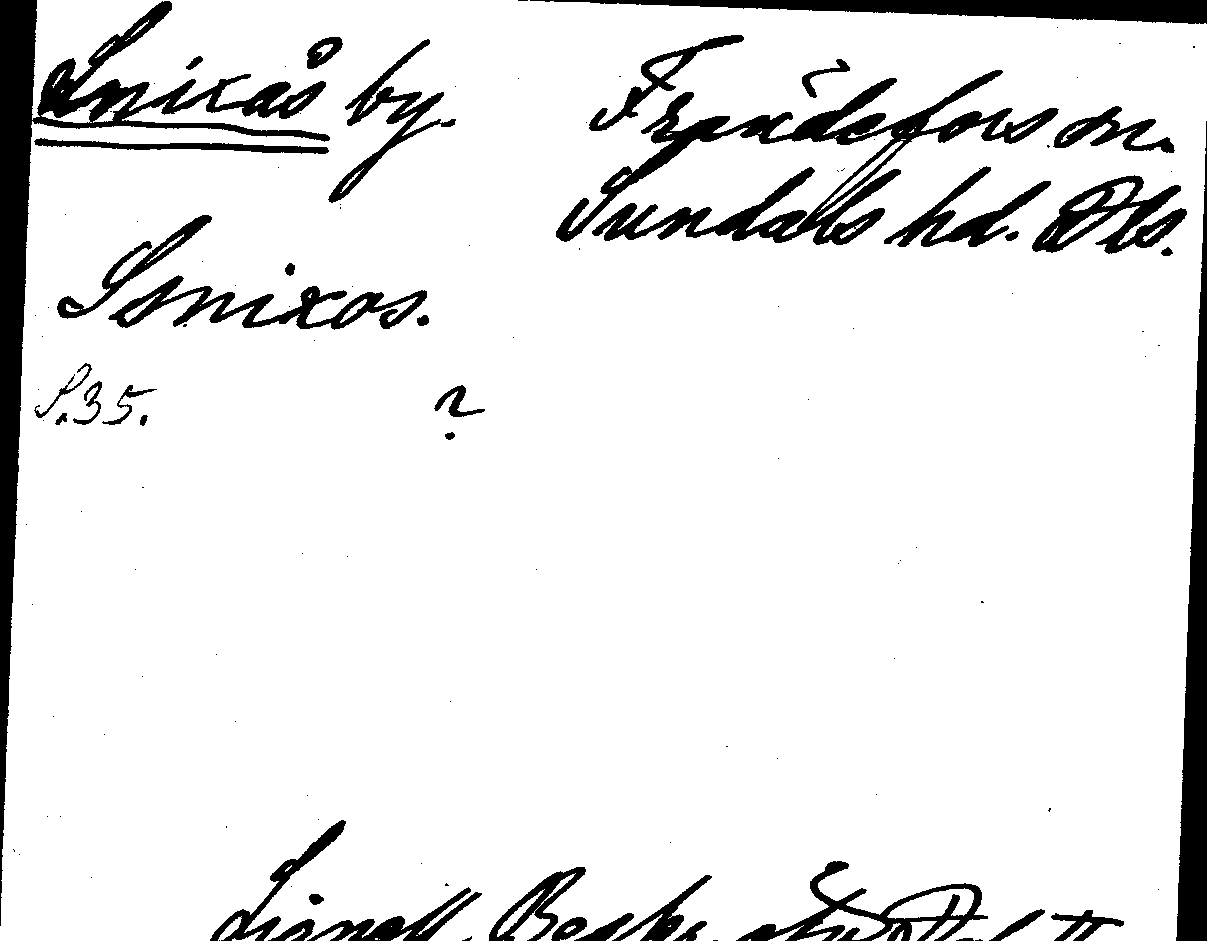 Snixås by. Frändefors sn.
Sundals hd. Dls.
Ssnixos.
S. 35. ?
Lignell, Beskr. Dal II